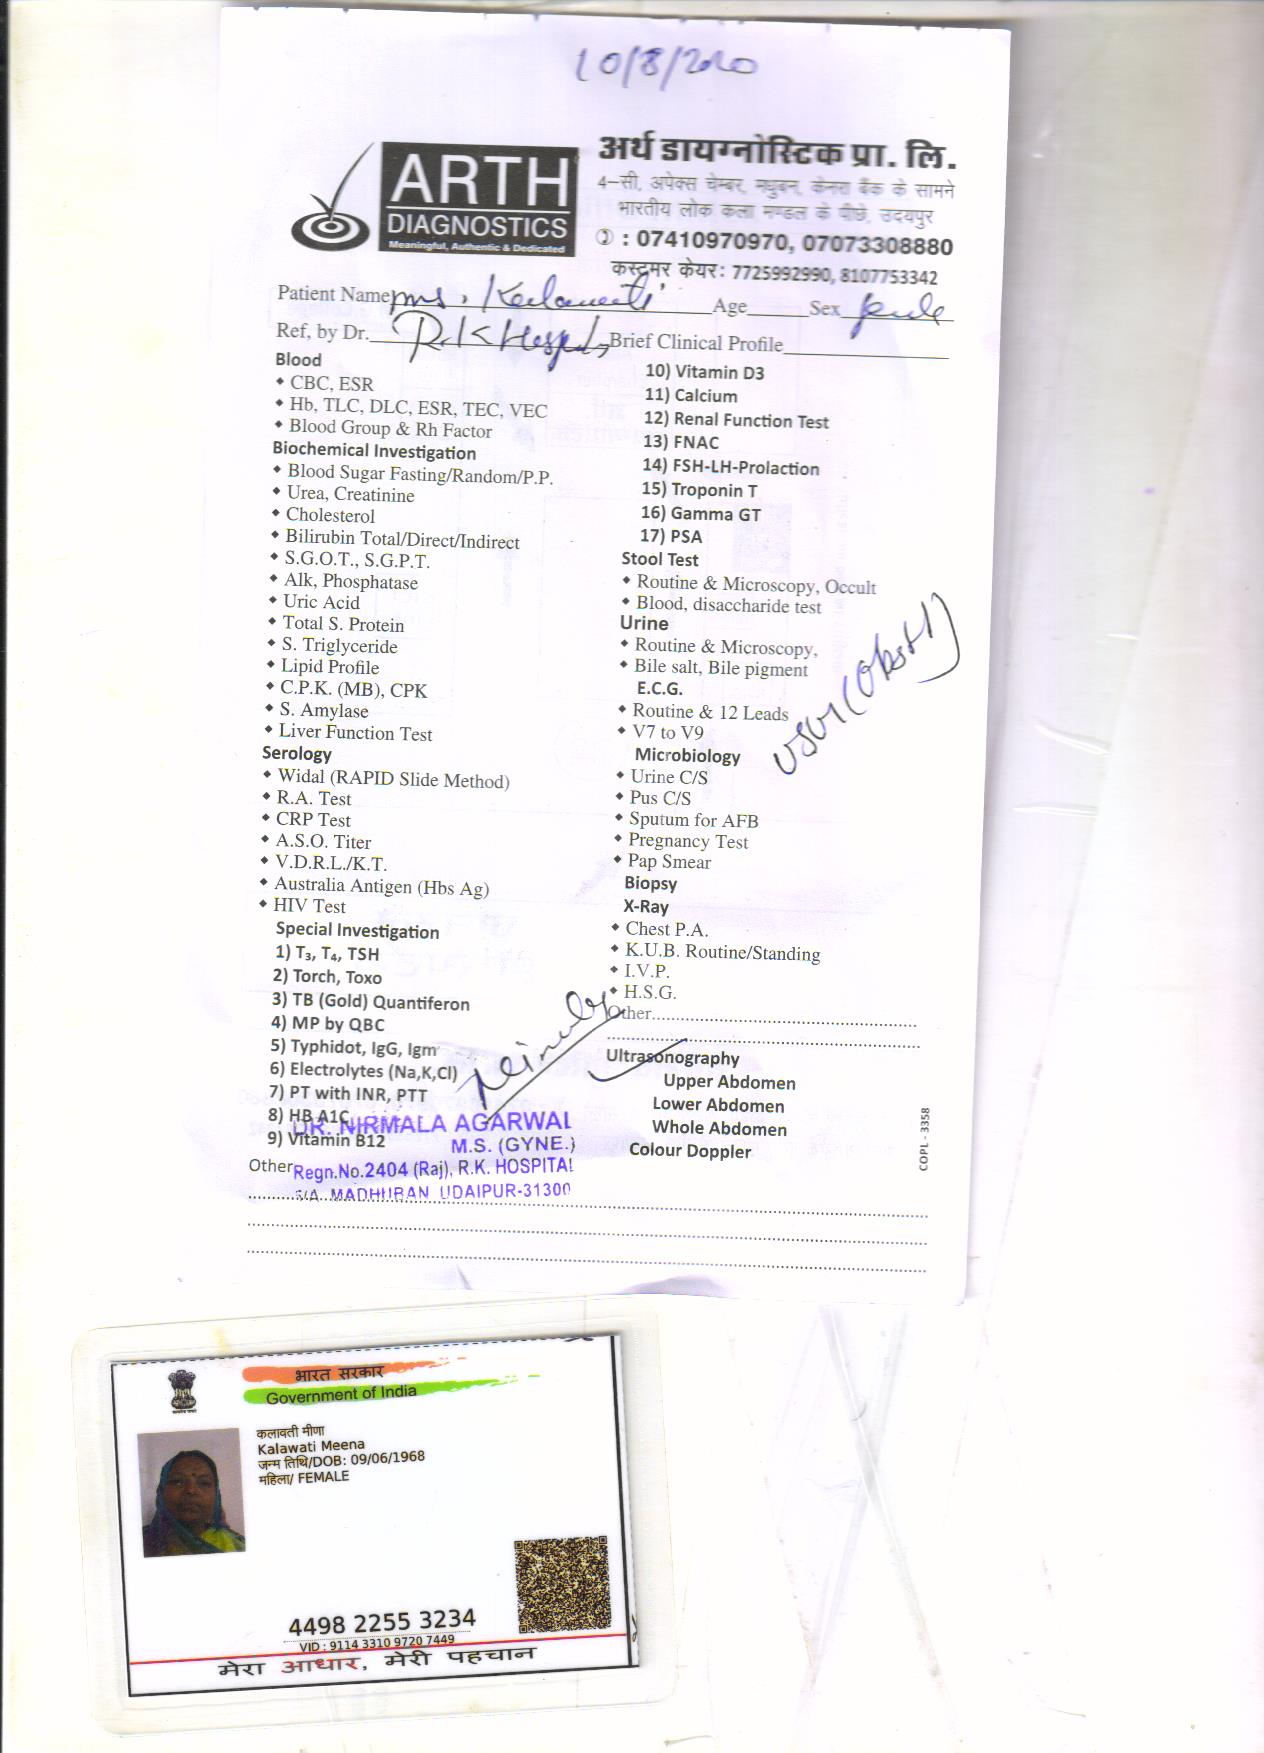 10/8/2020
ARTH
DIAGNOSTICS
Meaningful, Authentic & Dedicated
अर्थ डायग्नोस्टिक प्रा. लि.
4–सी, अपेक्स चेम्बर, मधुबन, केनरा बैंक के सामने
भारतीय लोक कला मण्डल के पीछे, उदयपुर
: 07410970970, 07073308880
कस्टमर केयर: 7725992990, 8107753342
Patient Name Ms. Age Sex
Ref, by Dr. R.K Hospital Brief Clinical Profile
Blood
CBC, ESR
Hb, TLC, DLC, ESR, TEC, VEC
Blood Group & Rh Factor
Biochemical Investigation
Blood Sugar Fasting/Random/P.P.
Urea, Creatinine
Cholesterol
Bilirubin Total/Direct/Indirect
S.G.O.T., S.G.P.T.
Alk, Phosphatase
Uric Acid
Total S. Protein
S. Triglyceride
Lipid Profile
C.P.K. (MB), CPK
S. Amylase
Liver Function Test
Serology
Widal (RAPID Slide Method)
R.A. Test
CRP Test
A.S.O. Titer
V.D.R.L./K.T.
Australia Antigen (Hbs Ag)
HIV Test
Special Investigation
1) T₃, T₄, TSH
2) Torch, Toxo
3) TB (Gold) Quantiferon
4) MP by QBC
5) Typhidot, IgG, Igm
6) Electrolytes (Na,K,Cl)
7) PT with INR, PTT
8) HB A1C
9) Vitamin B12
Other
10) Vitamin D3
11) Calcium
12) Renal Function Test
13) FNAC
14) FSH-LH-Prolaction
15) Troponin T
16) Gamma GT
17) PSA
Stool Test
Routine & Microscopy, Occult
Blood, disaccharide test
Urine
Routine & Microscopy,
Bile salt, Bile pigment
E.C.G.
Routine & 12 Leads
V7 to V9
Microbiology
Urine C/S
Pus C/S
Sputum for AFB
Pregnancy Test
Pap Smear
Biopsy
X-Ray
Chest P.A.
K.U.B. Routine/Standing
I.V.P.
H.S.G.
Other
Ultrasonography
Upper Abdomen
Lower Abdomen
Whole Abdomen
Colour Doppler
COPL - 3358
DR. NIRMALA AGARWAL
M.S. (GYNE.)
Regn.No.2404 (Raj), R.K. HOSPITAL
5/A, MADHUBAN, UDAIPUR-31300
भारत सरकार
Government of India
कलावती मीणा
Kalawati Meena
जन्म तिथि/DOB: 09/06/1968
महिला/ FEMALE
4498 2255 3234
VID : 9114 3310 9720 7449
मेरा आधार, मेरी पहचान